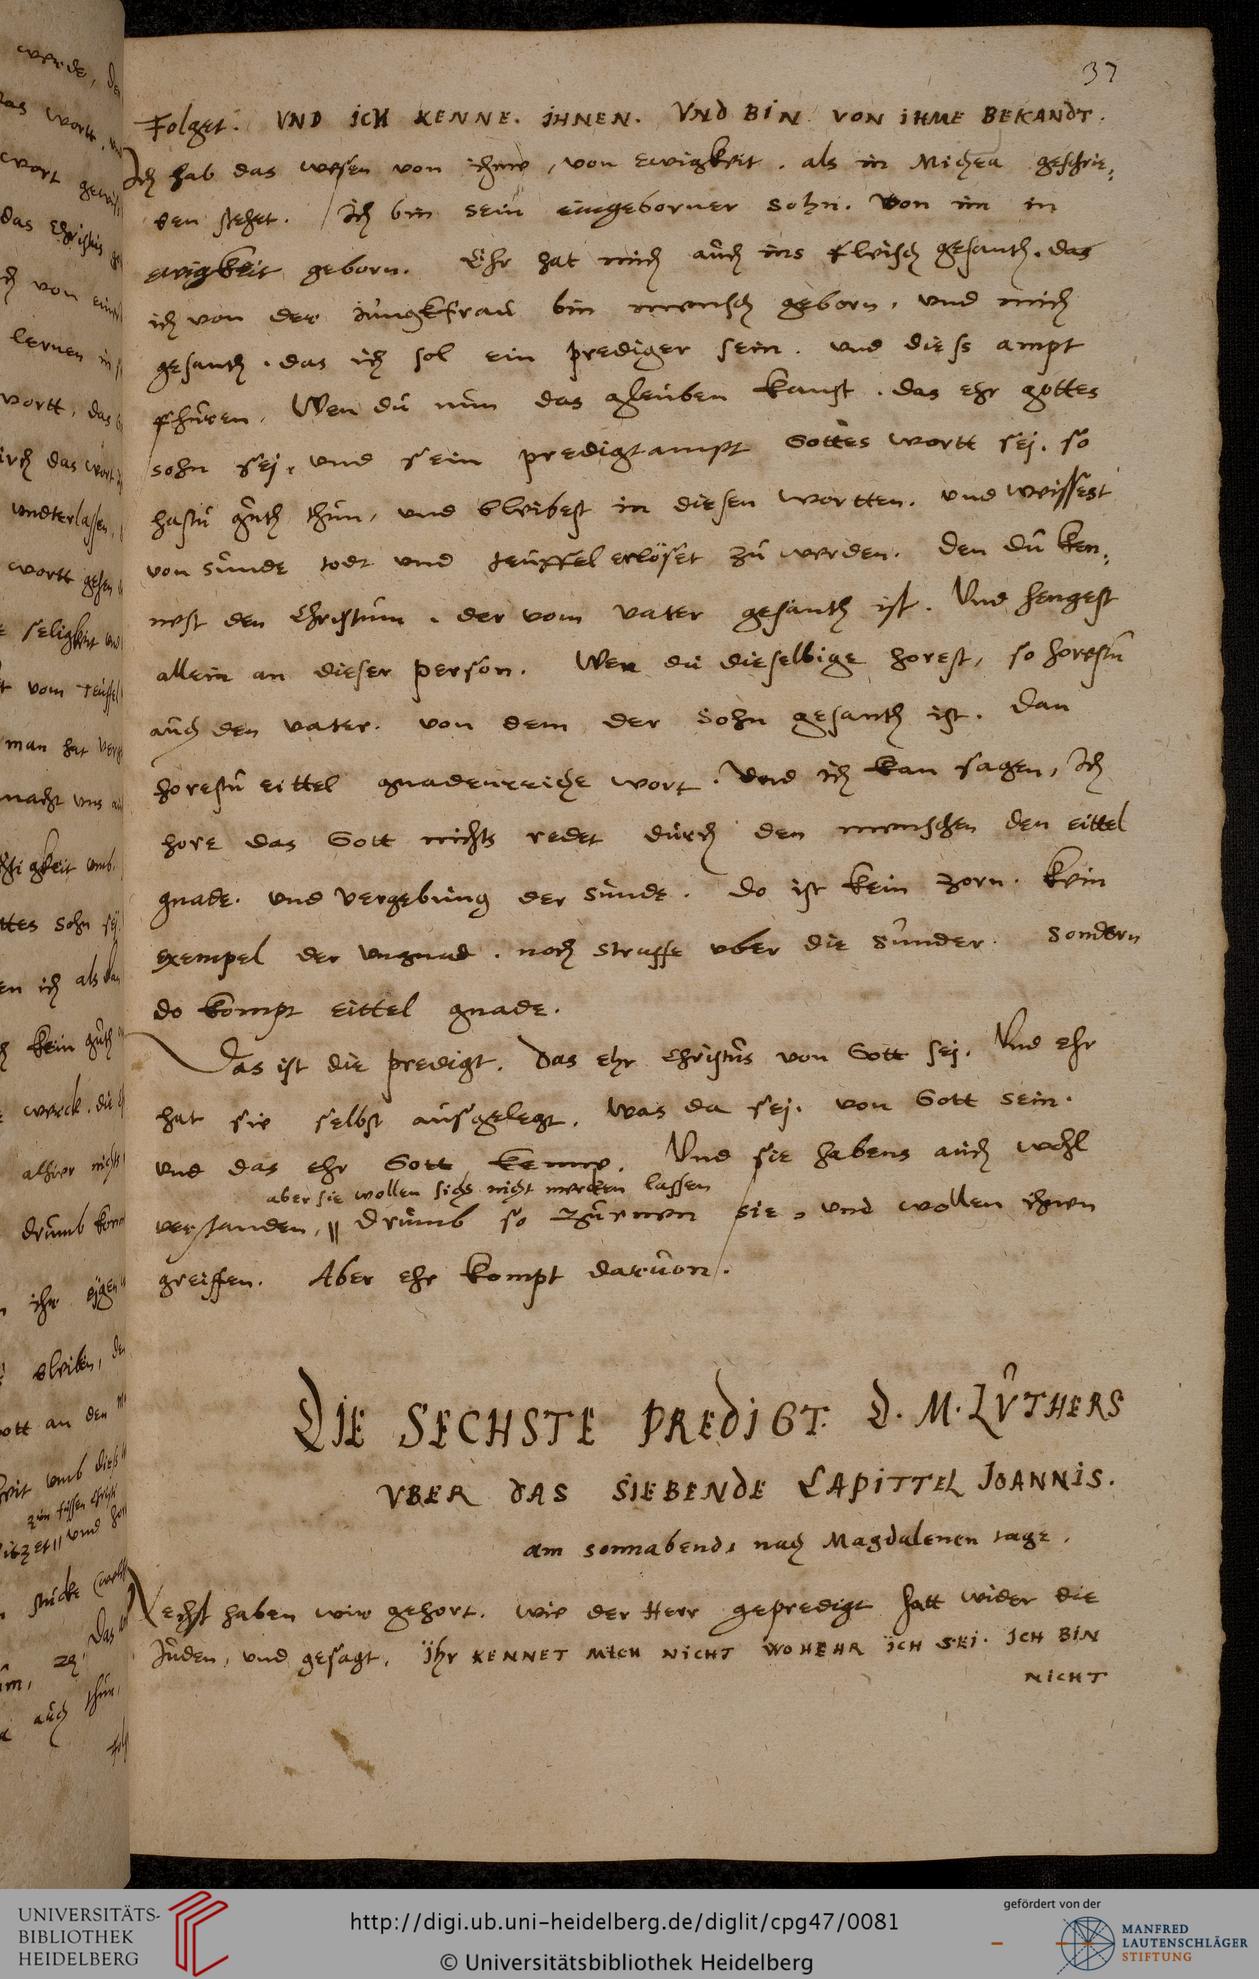 37
Folget. VND ICH KENNE. IHNEN. VND BIN VON IHME BEKANDT.
Ich hab das wesen von ihme, von ewigkeit. als in Michea geschrie,
ben stehet. Ich bin sein eingeborner sohn. von im in
ewigkeit geborn. Ehr hat mich auch ins fleisch gesanth. das
ich von der Jungkfrau bin mensch geborn, und mich
gesanth. das ich sol ein prediger sein. und diess ampt
fhuren. Wen du nun das gleuben kanst. das ehr gottes
sohn sej, und sein predigtampt Gottes wortt sej. so
hastu guth thun, und bleibest in diesen wortten. und weissest
von sunde todt und teuffel erlöset zu werden. den du ken,
nest den Christum. der vom vater gesanth ist. Und hengest
allein an dieser person. Wen du dieselbige horest, so horestu
auch den vater. von dem der sohn gesanth ist. Dan
horestu eittel gnadenreiche wort. Und ich kan sagen, Ich
hore das Gott nichts redet durch den menschen den eittel
gnade. und vergebung der sunde. do ist kein zorn. kein
exempel der ungnad. noch straffe uber die sunder. sondern
do kompt eittel gnade.
Das ist die predigt. das ehr Christus von Gott sej. Und ehr
hat sie selbst ausgelegt. was da sej. von Gott sein.
und das ehr Gott kenne. Und sie habens auch wohl
aber sie wollen sichs nicht mercken lassen
verstanden, || drumb so zurnen sie, und wollen ihnen
greiffen. Aber ehr kompt daruon.
DIE SECHSTE PREDIGT. D. M. LUTHERS
VBER DAS SIEBENDE CAPITTEL JOANNIS.
am sonnabend, nach Magdalenen tage.
Nechst haben wir gehort. wie der Herr gepredigt hatt wider die
Juden, und gesagt. Ihr KENNET MICH NICHT WOHEHR ICH SEI. ICH BIN
NICHT
UNIVERSITÄTS-
BIBLIOTHEK
HEIDELBERG
http://digi.ub.uni-heidelberg.de/diglit/cpg47/0081
© Universitätsbibliothek Heidelberg
gefördert von der
MANFRED
LAUTENSCHLÄGER
STIFTUNG